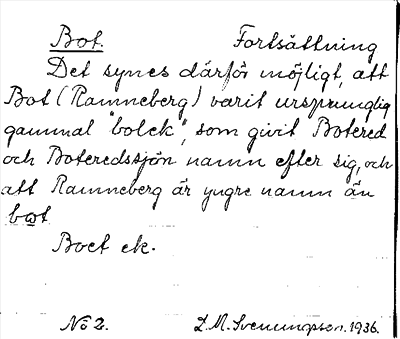 Bot. Fortsättning
Det synes därför möjligt, att
Bot (Ramneberg) varit ursprunglig
gammal "bolck", som givit Botered
och Boteredssjön namn efter sig, och
att Ramneberg är yngre namn än
bot
Boet ek.
No 2. L.M. Svenungsson. 1936.